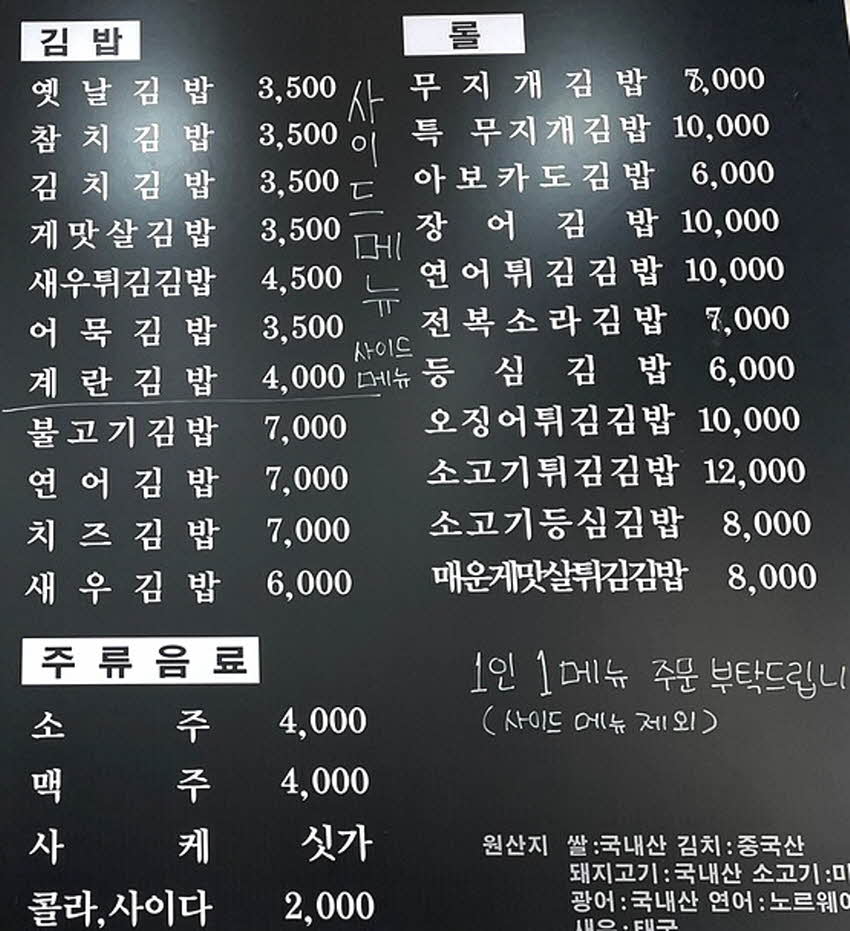 김밥
옛날김밥 3,500
참치김밥 3,500
김치김밥 3,500
게맛살김밥 3,500
새우튀김김밥 4,500
어묵김밥 3,500
계란김밥 4,000
불고기김밥 7,000
연어김밥 7,000
치즈김밥 7,000
새우김밥 6,000
사이드메뉴
사이드
메뉴
롤
무지개김밥 8,000
특 무지개김밥 10,000
아보카도김밥 6,000
장어김밥 10,000
연어튀김김밥 10,000
전복소라김밥 7,000
등심김밥 6,000
오징어튀김김밥 10,000
소고기튀김김밥 12,000
소고기등심김밥 8,000
매운게맛살튀김김밥 8,000
주류음료
소주 4,000
맥주 4,000
사케 싯가
콜라,사이다 2,000
1인 1메뉴 주문 부탁드립니
(사이드 메뉴 제외)
원산지 쌀:국내산 김치:중국산
돼지고기:국내산 소고기:미
광어:국내산 연어:노르웨이
새우:태국